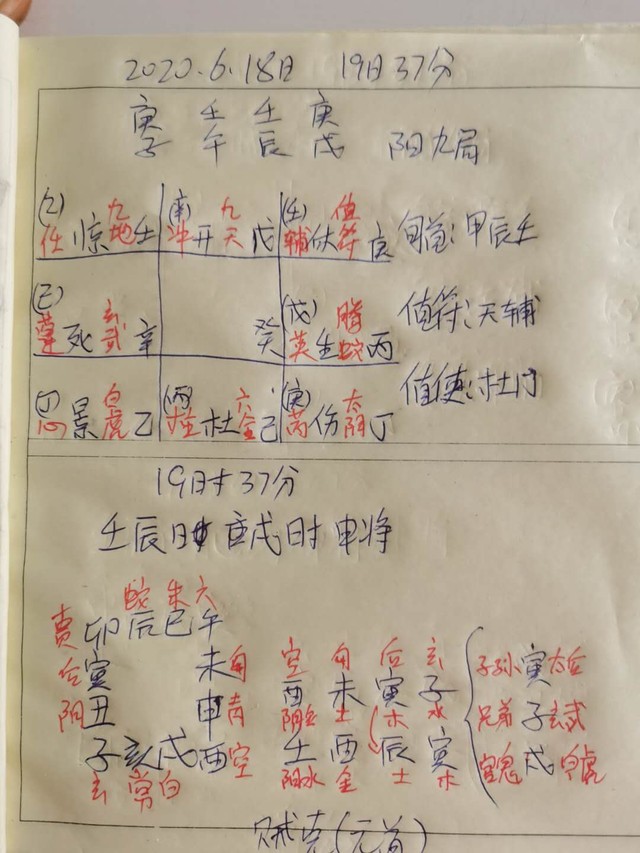 2020.6.18日 19时37分
庚 壬 壬 庚
子 午 辰 戌 阳九局
(乙) 九 (南) 九 (壬) 值
任 惊 地 壬 冲 开 天 戊 辅 休 符 庚 旬首:甲辰壬
玄 (戊) 腾
蓬 死 武 辛 癸 英 生 蛇 丙 值符:天辅
(丁) 白 (丙) 六 (庚) 太
心 景 虎 乙 柱 杜 合 己 芮 伤 阴 丁 值使:杜门
19时37分
壬辰日 庚戌时 申将
蛇 朱 六
贵 卯 辰 巳 午
后 寅 未 勾 空 勾 后 玄 子孙 寅 天后
阴 丑 申 青 酉 未 寅 子 兄弟 子 玄武
子 亥 戌 酉 空 壬 酉 辰 寅 官鬼 戌 白虎
玄 常 白 阳水 金 土 木
贼克(元首)